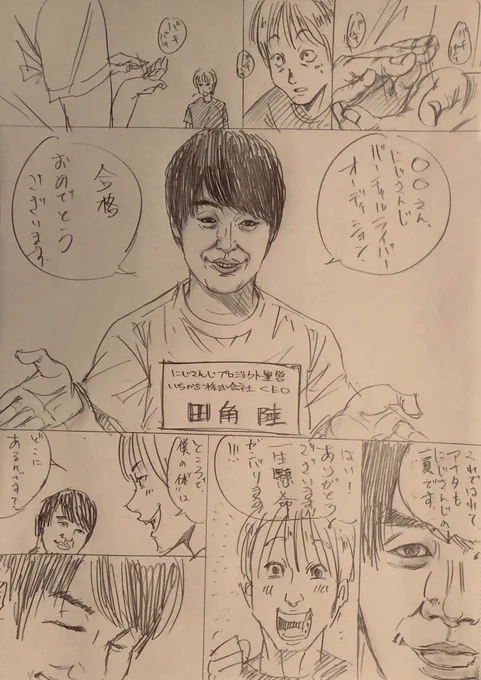 パチ
パチ
パチ
パチ
パチ
パチ
〇〇さん、
にじさんじ
バーチャルライバー
オーディション
合格
おめでとう
ございます。
にじさんじプロジェクト運営
いちから株式会社 CEO
田角 陸
これではれて
アナタも
にじさんじの
一員です。
はい!
ありがとう
ございます!
一生懸命
ガンバリます!
!!!
ところで、
僕の体は
どこに
あるんですか?